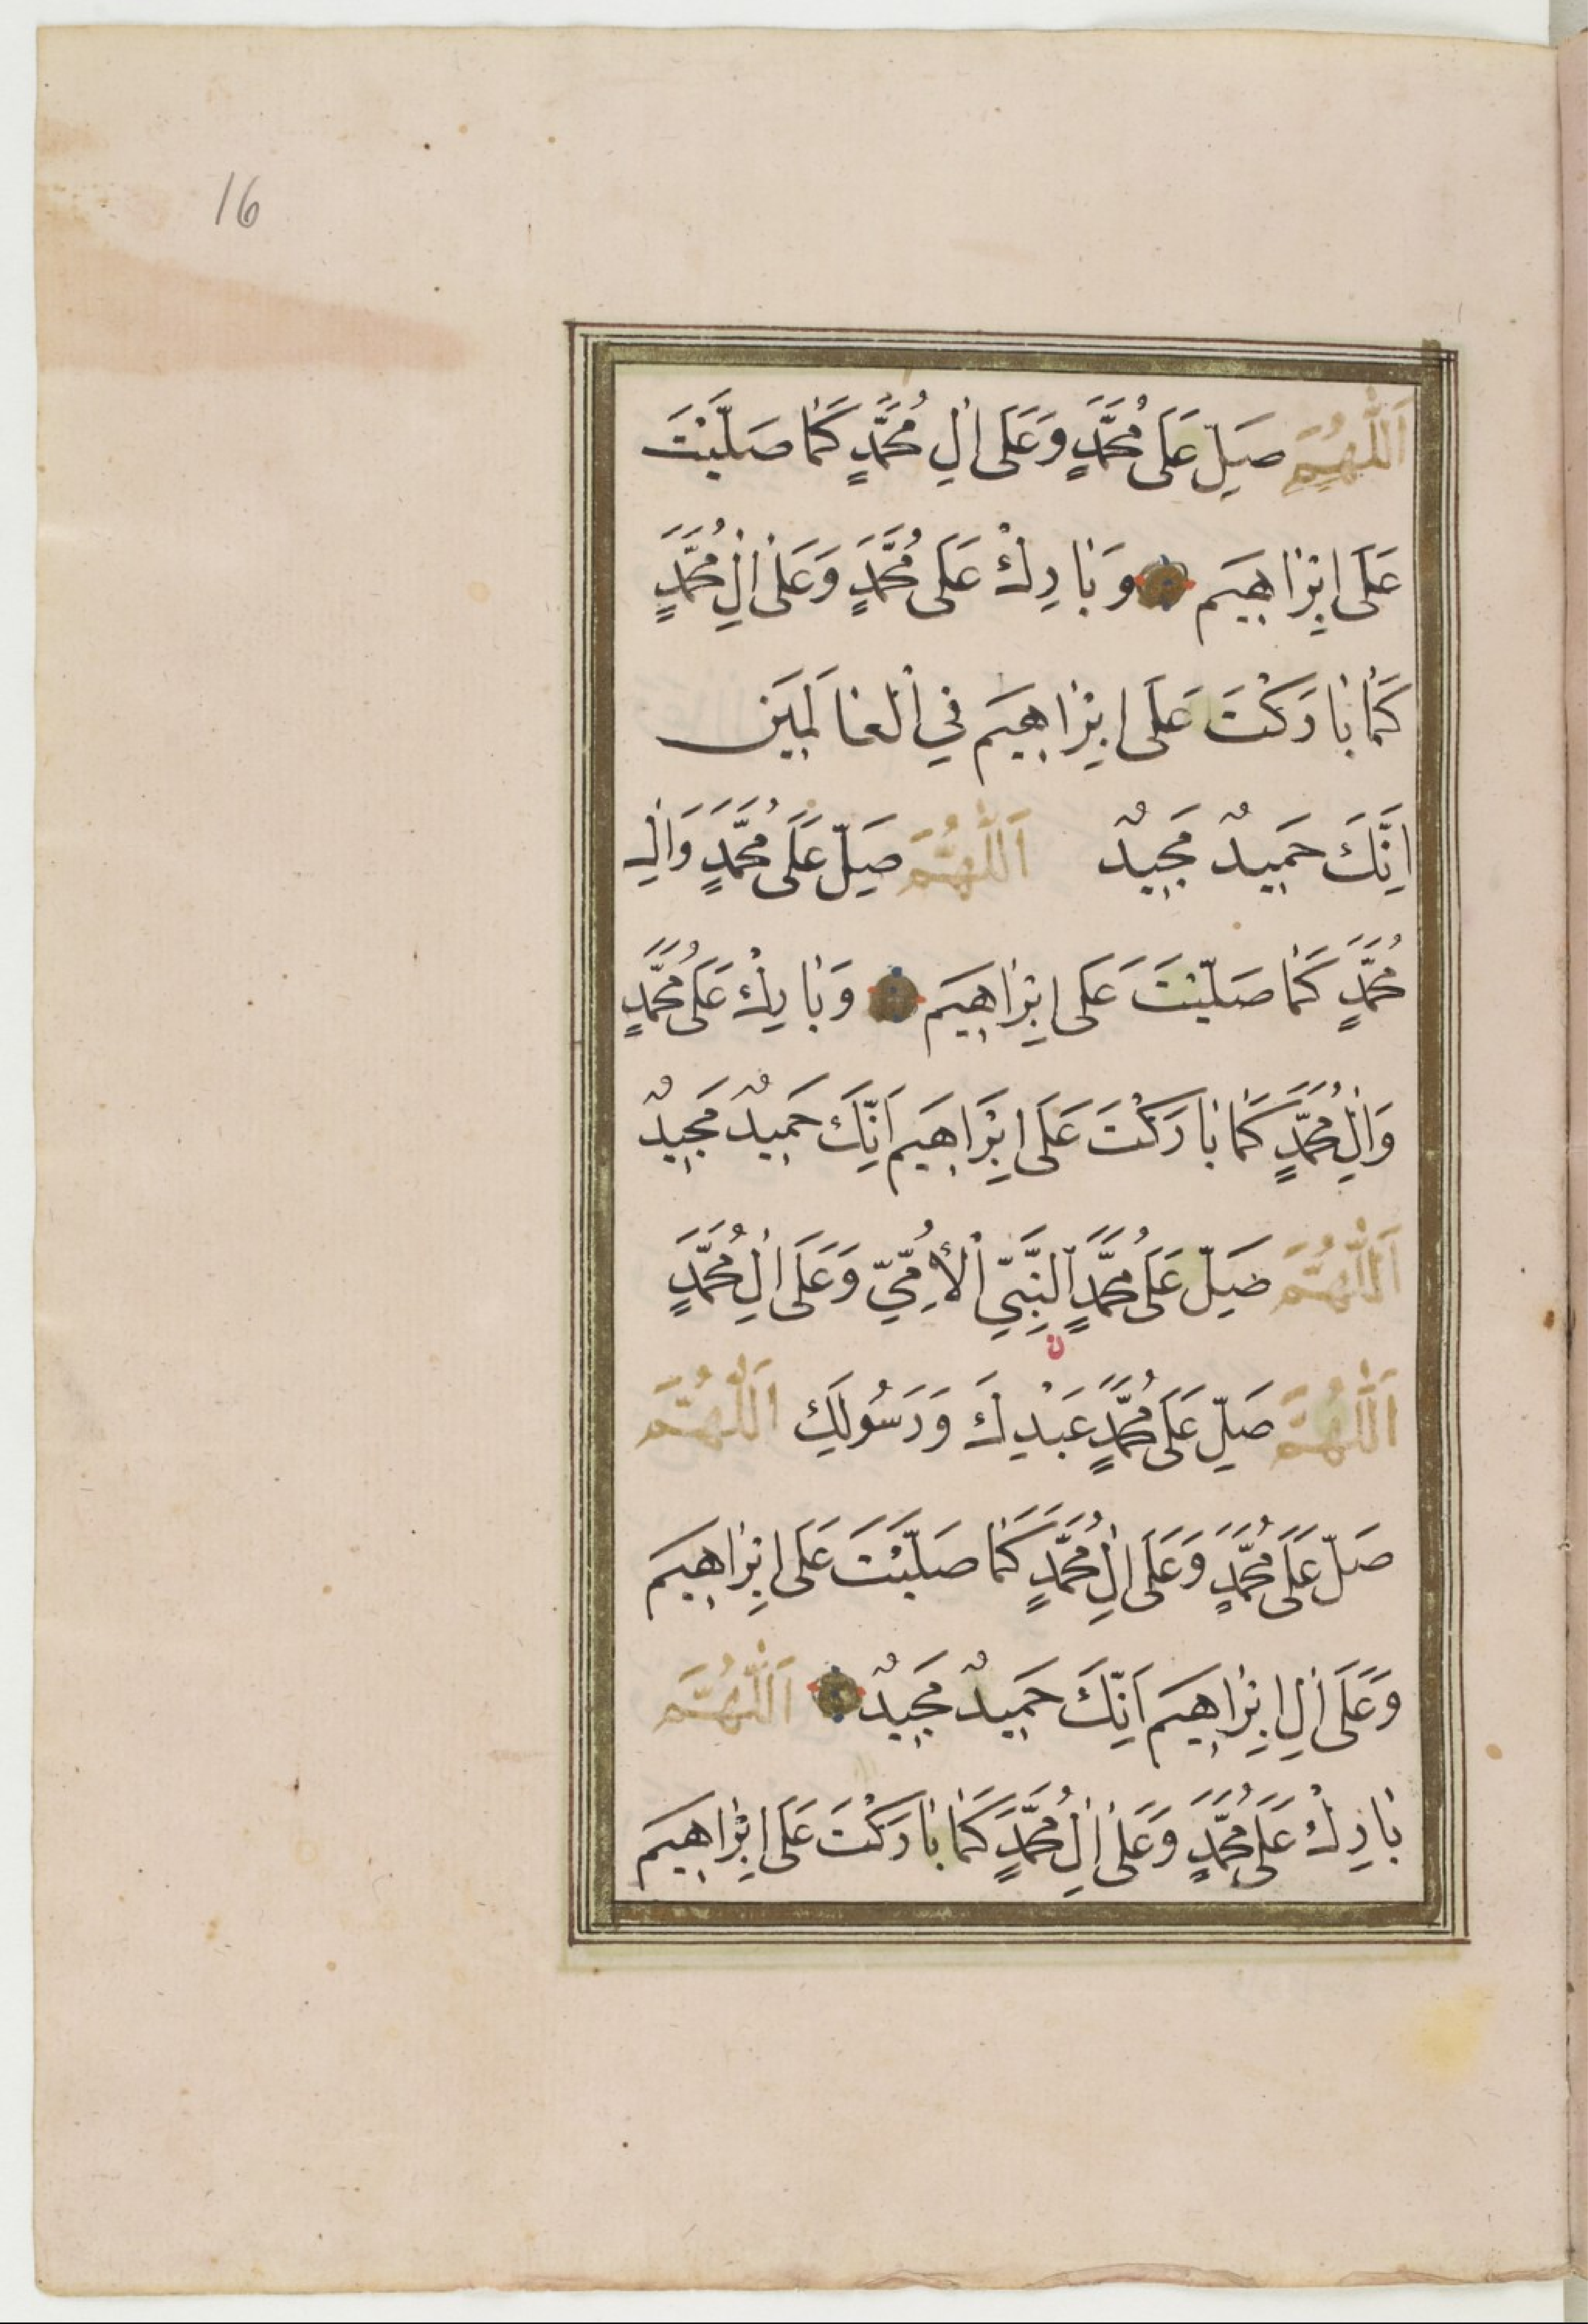 16
اَللّٰهُمَّ صَلِّ عَلَى مُحَمَّدٍ وَعَلَى اٰلِ مُحَمَّدٍ كَمٰا صَلَّيْتَ
عَلَى اِبْرٰاهِيمَ وَبٰارِكْ عَلَى مُحَمَّدٍ وَعَلٰى اٰلِ مُحَمَّدٍ
كَمٰا بٰارَكْتَ عَلَى اِبْرٰاهِيمَ فِي الْعٰالَمِينَ
اِنَّكَ حَمِيدٌ مَجِيدٌ اَللّٰهُمَّ صَلِّ عَلَى مُحَمَّدٍ وَاٰلِ
مُحَمَّدٍ كَمٰا صَلَّيْتَ عَلَى اِبْرٰاهِيمَ وَبٰارِكْ عَلَى مُحَمَّدٍ
وَاٰلِ مُحَمَّدٍ كَمٰا بٰارَكْتَ عَلَى اِبْرٰاهِيمَ اِنَّكَ حَمِيدٌ مَجِيدٌ
اَللّٰهُمَّ صَلِّ عَلَى مُحَمَّدٍ النَّبِيِّ الْأُمِّيِّ وَعَلَى اٰلِ مُحَمَّدٍ
اَللّٰهُمَّ صَلِّ عَلَى مُحَمَّدٍ عَبْدِكَ وَرَسُولِكَ اَللّٰهُمَّ
صَلِّ عَلَى مُحَمَّدٍ وَعَلَى اٰلِ مُحَمَّدٍ كَمٰا صَلَّيْتَ عَلَى اِبْرٰاهِيمَ
وَعَلَى اٰلِ اِبْرٰاهِيمَ اِنَّكَ حَمِيدٌ مَجِيدٌ اَللّٰهُمَّ
بٰارِكْ عَلَى مُحَمَّدٍ وَعَلٰى اٰلِ مُحَمَّدٍ كَمٰا بٰارَكْتَ عَلَى اِبْرٰاهِيمَ